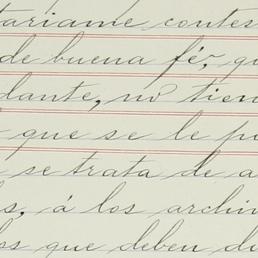 tariame contes
de buena fé, qu
dante, no tien
que se le p
se trata de a
s, á los archiv
los que deben di